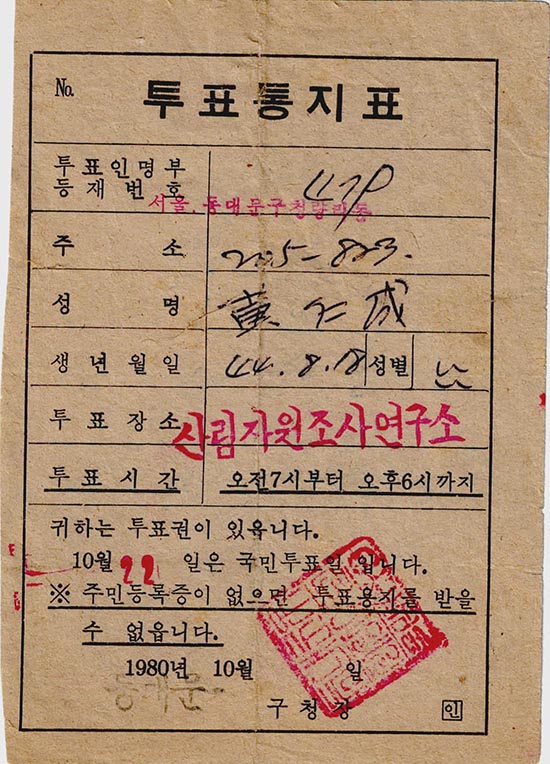 No.
투표통지표
투표인명부
등재번호
서울. 동대문구청량리동
주 소
205-823.
성 명
黄仁成
생년월일 44. 8. 18 성별 남
투표장소 산림자원조사연구소
투표시간 오전7시부터 오후6시까지
귀하는 투표권이 있읍니다.
10월 22 일은 국민투표일입니다.
※ 주민등록증이 없으면 투표용지를 받을
수 없읍니다.
1980년 10월 일
동대문
구청장 인